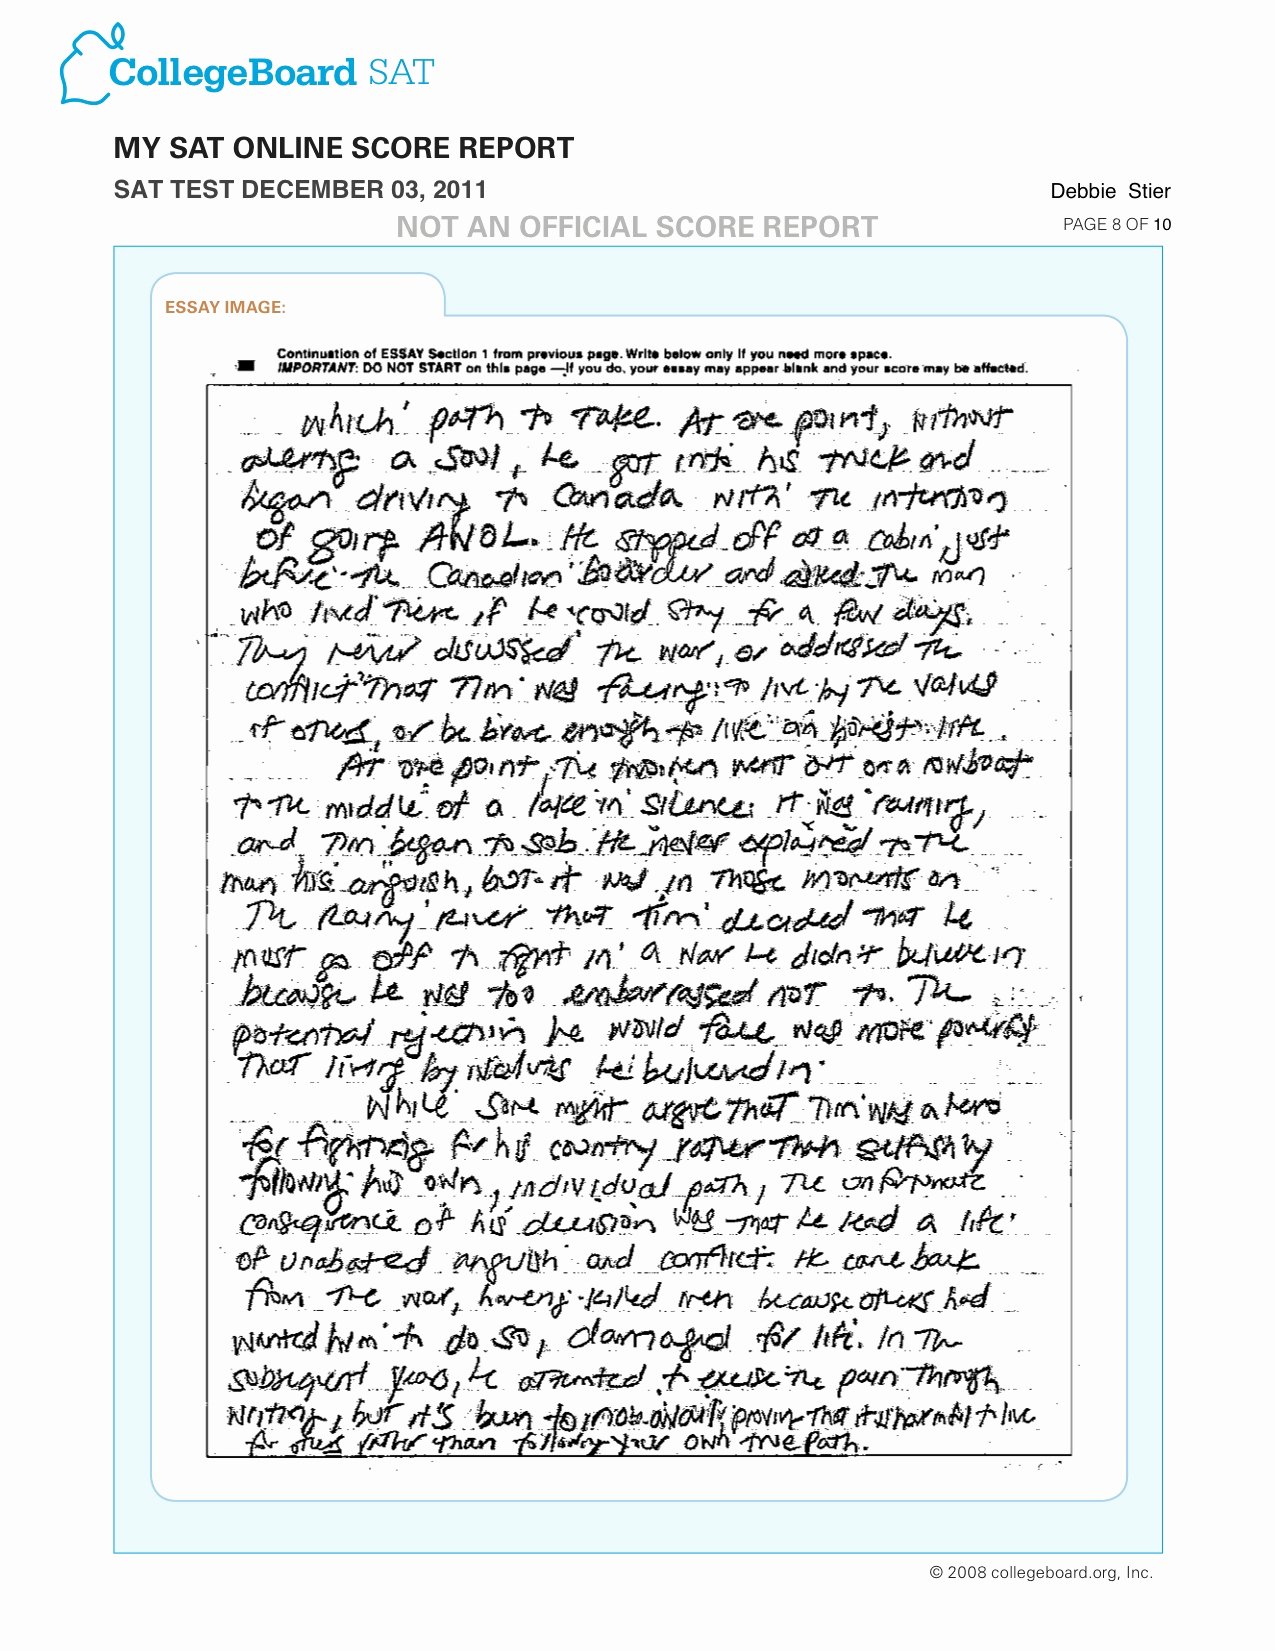 CollegeBoard SAT
MY SAT ONLINE SCORE REPORT
SAT TEST DECEMBER 03, 2011
Debbie Stier
NOT AN OFFICIAL SCORE REPORT
PAGE 8 OF 10
ESSAY IMAGE:
Continuation of ESSAY Section 1 from previous page. Write below only if you need more space.
IMPORTANT: DO NOT START on this page —if you do, your essay may appear blank and your score may be affected.
which path to take. At one point, without
alerting a soul, he got into his truck and
began driving to Canada with the intention
of going AWOL. He stopped off at a cabin just
before the Canadian boarder and asked the man
who lived there if he could stay for a few days.
They never discussed the war, or addressed the
conflict that Tim was facing: to live by the values
of others, or be brave enough to live an honest life.
At one point, the two men went out on a rowboat
to the middle of a lake in silence; it was raining,
and Tim began to sob. He never explained to the
man his anguish, but it was in those moments on
The Rainy River that Tim decided that he
must go off to fight in a war he didn't believe in
because he was too embarrassed not to. The
potential rejection he would face was more powerful
that living by values he believed in.
While some might argue that Tim was a hero
for fighting for his country rather than selfishly
following his own, individual path, the unfortunate
consequence of his decision was that he lead a life
of unabated anguish and conflict. He came back
from the war, having killed men because others had
wanted him to do so, damaged for life. In the
subsequent years, he attempted to excise the pain through
writing, but it's been to no avail, proving that it is harmful to live
for others rather than following your own true path.
© 2008 collegeboard.org, Inc.